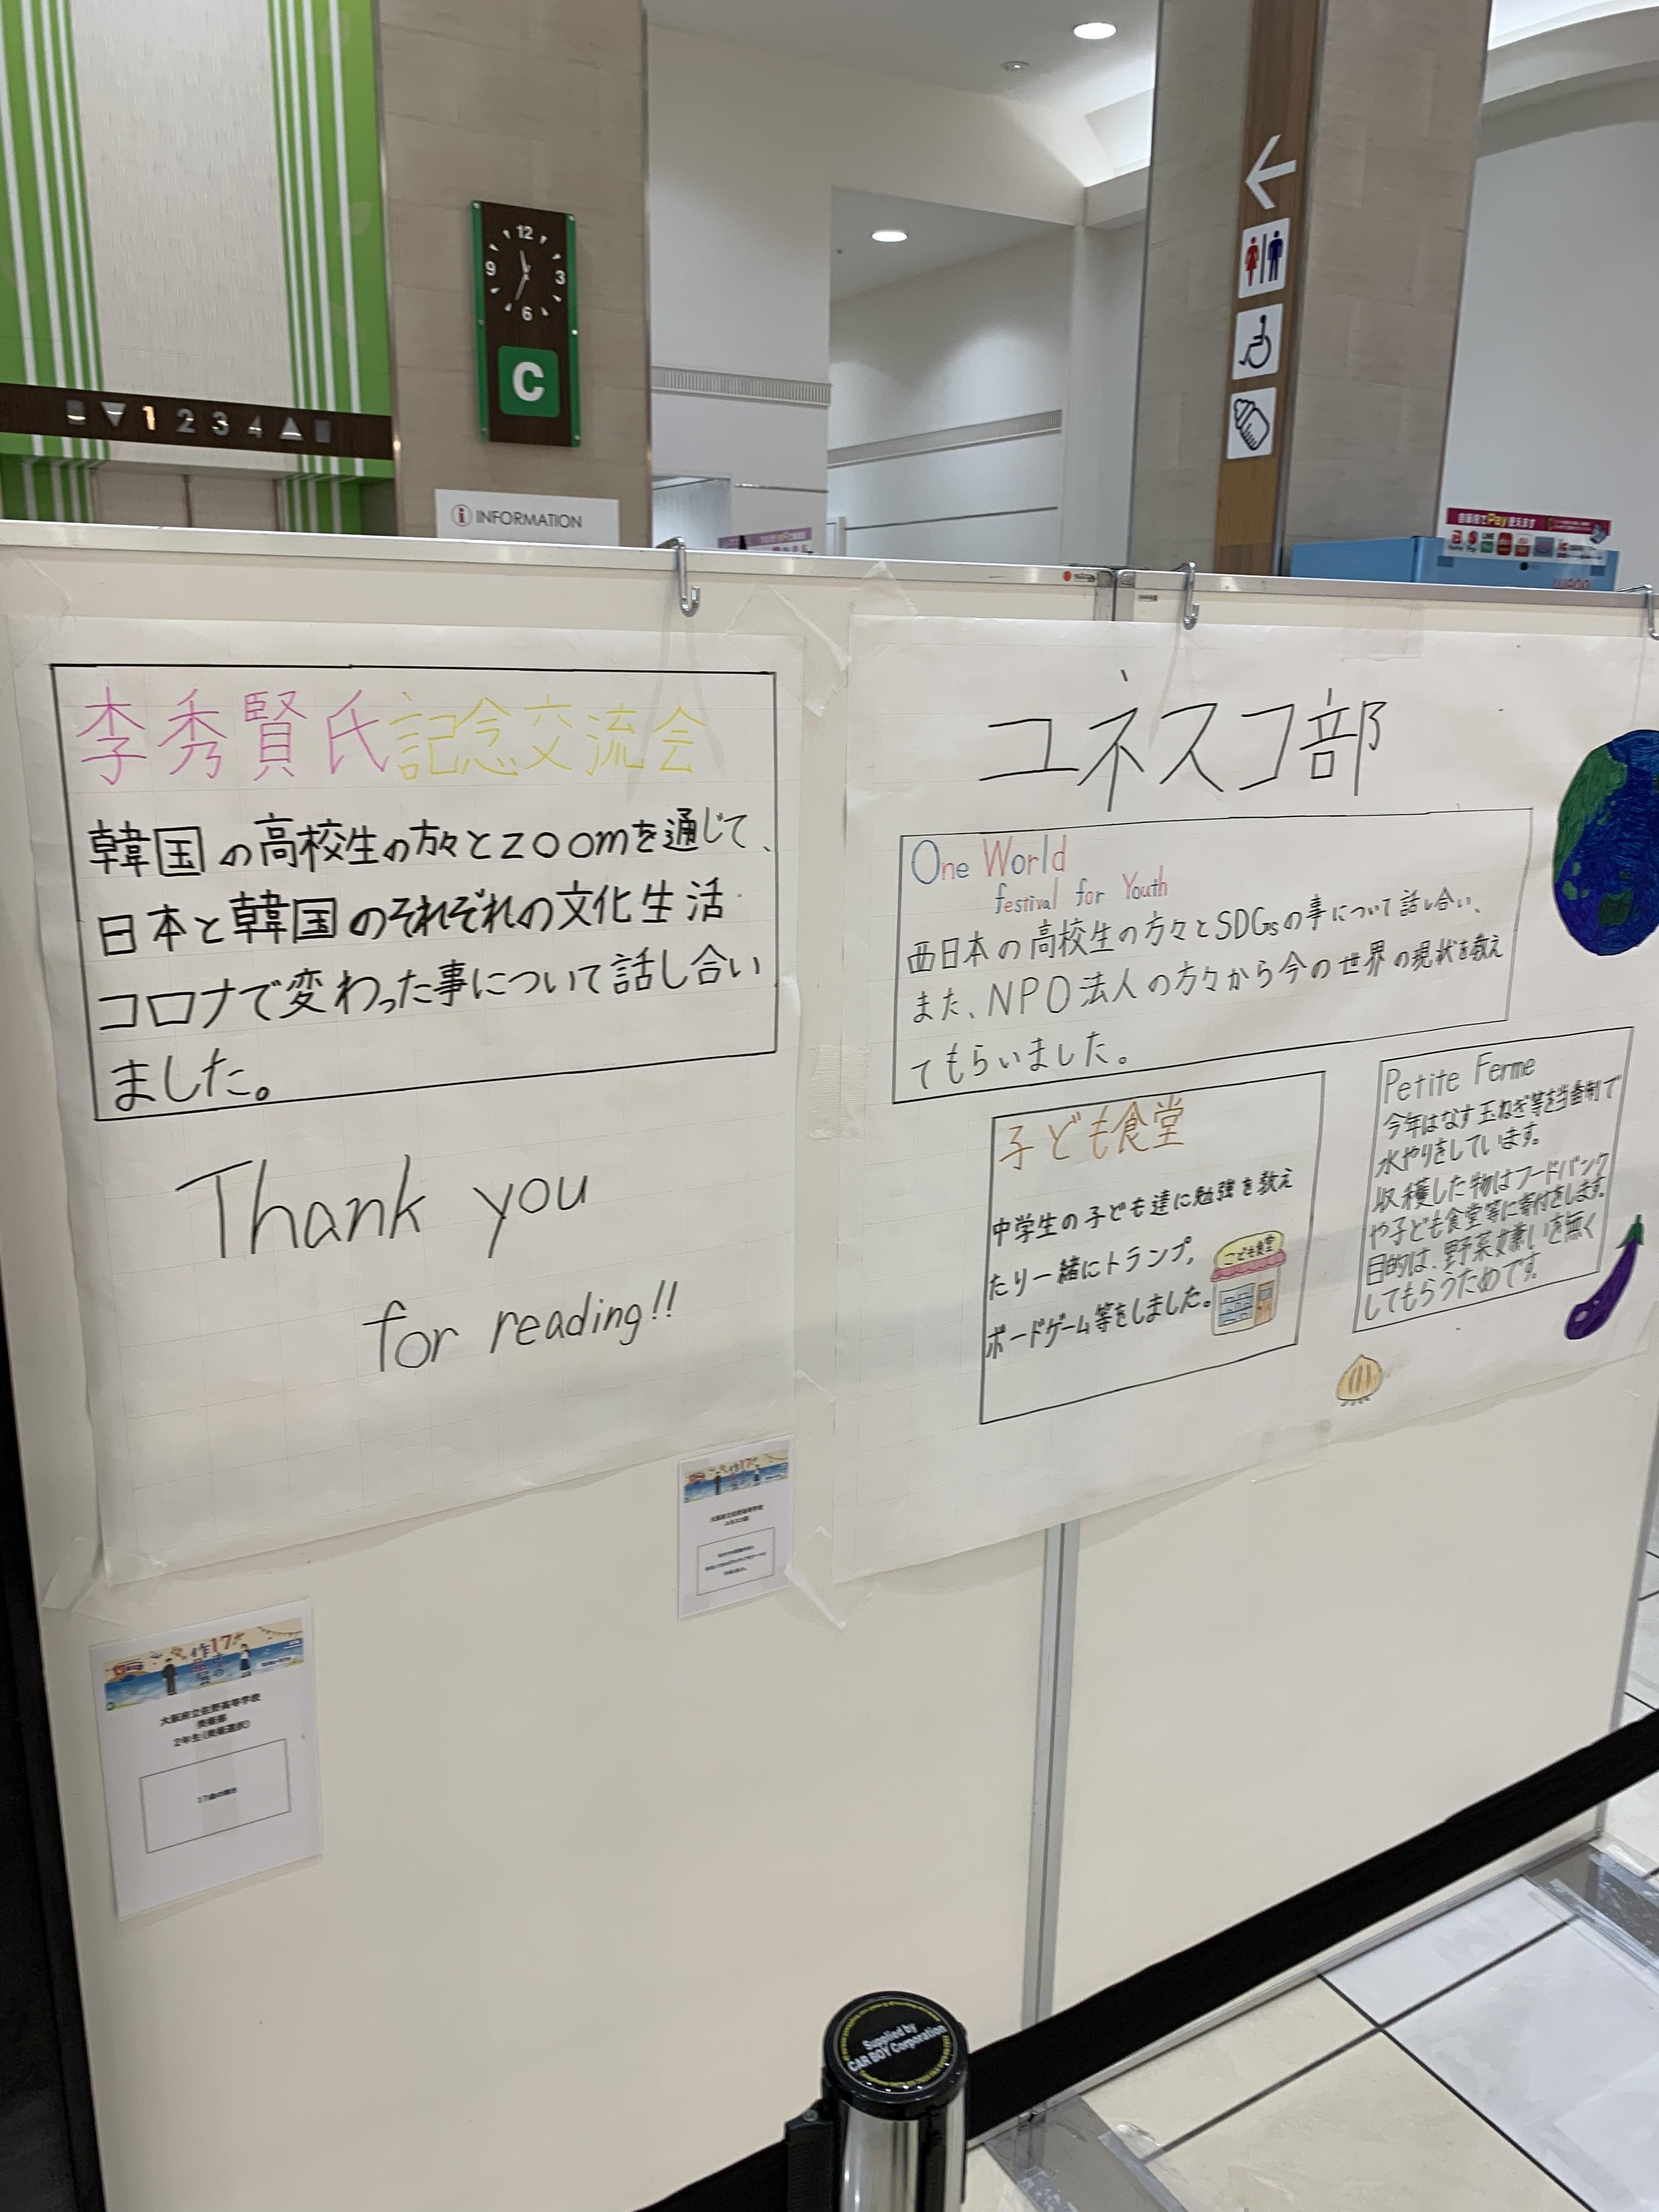 12
3
6
9
C
1 2 3 4
INFORMATION
Pay
李秀賢氏記念交流会
韓国の高校生の方々とzoomを通じて、
日本と韓国のそれぞれの文化生活
コロナで変わった事について話し合い
ました。
Thank you
for reading!!
ユネスコ部
One World
festival for Youth
西日本の高校生の方々とSDGsの事について話し合い、
また、NPO法人の方々から今の世界の現状を教え
てもらいました。
子ども食堂
中学生の子ども達に勉強を教え
たり一緒にトランプ,
ボードゲーム等をしました。
こども食堂
Petite Ferme
今年はなす玉ねぎ等を当番制で
水やりをしています。
収穫した物はフードバンク
や子ども食堂等に寄付をします。
目的は、野菜嫌いを無く
してもらうためです。
大阪府立佐野高等学校
大阪府立佐野高等学校
美術部
2年生(美術選択)
Supplied by
CAR BOY Corporation